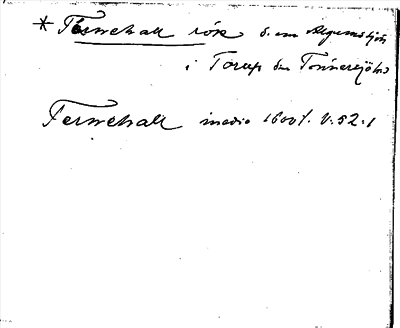 * Fernehall rök d. om Algamossjön
i Torup Sn Tönnersjö hd
Fernehall medio 1600 t. V:52:1